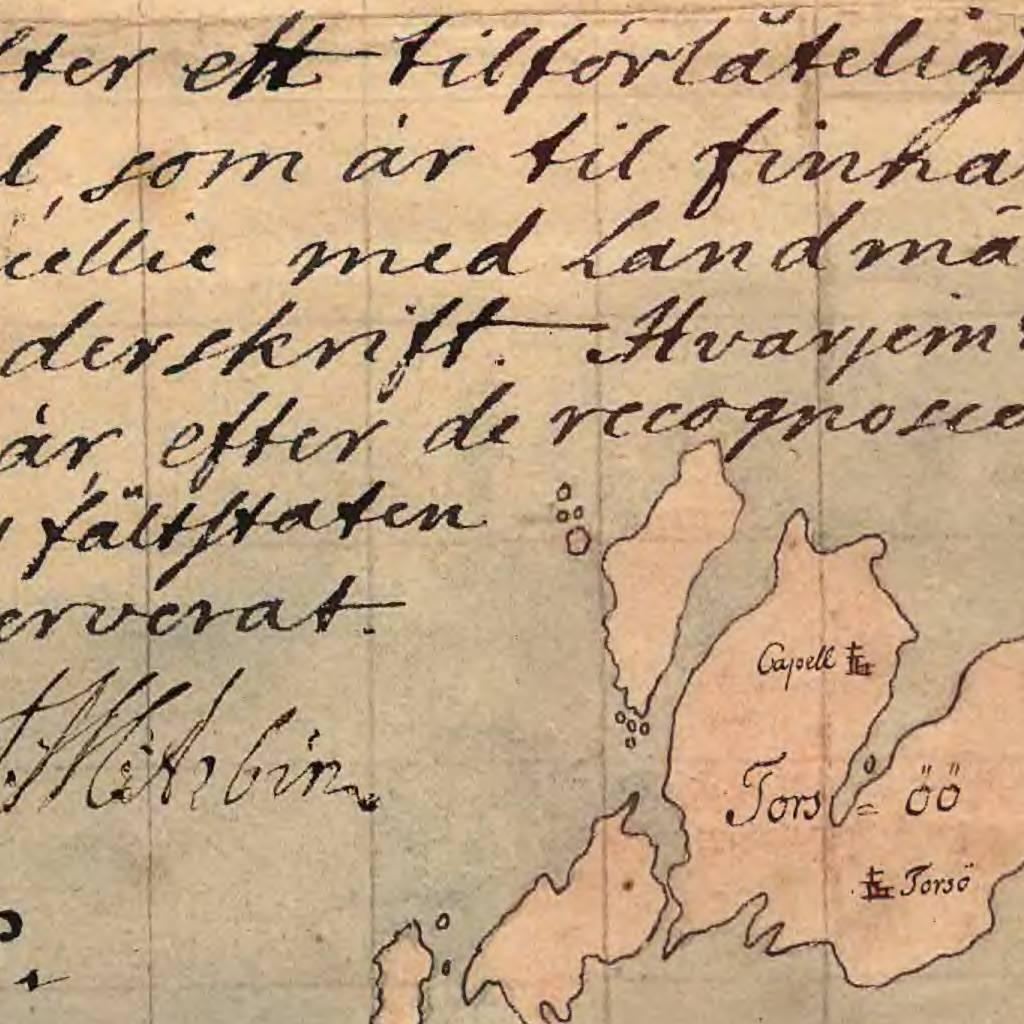 ett tilförlåtelig
som är til finna
med Landmä
derskrift. Hvarjemt
är efter de recognosce
fältstaten
erverat.
Capell
Tors = öö
Torsö